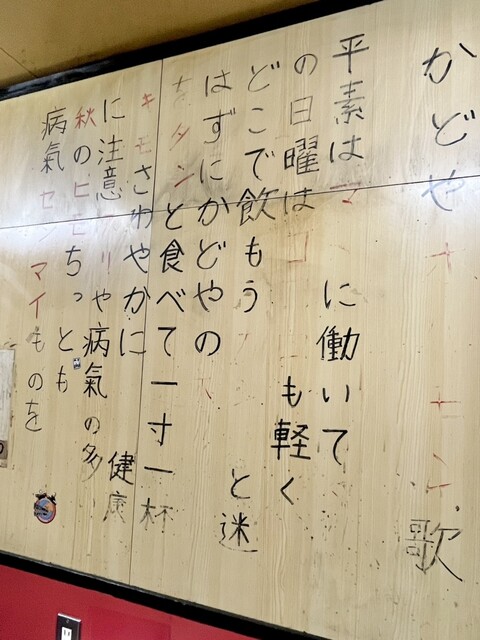 かどや 歌
平素はマ に働いて
の日曜は も軽く
どこで飲もう と迷
はずにかどやの
タンと食べて一寸一杯
キモさわやかに 健康
に注意 リや病氣の多
秋のヒモちっとも
病氣センマイものを